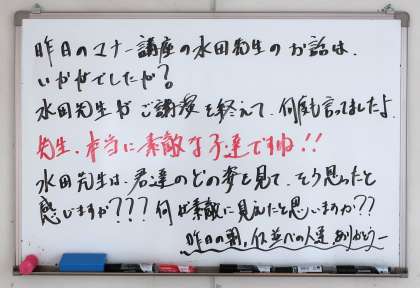 昨日のマナー講座の水田先生のお話は、
いかがでしたか？
水田先生がご講演を終えて、何度も言ってましたよ。
先生、本当に素敵な子達ですね！！
水田先生は、君達のどの姿を見て、そう思ったと
感じますか？？？何が素敵に見えたと思いますか？？
昨日の朝、仮並べの人達、ありがとうー